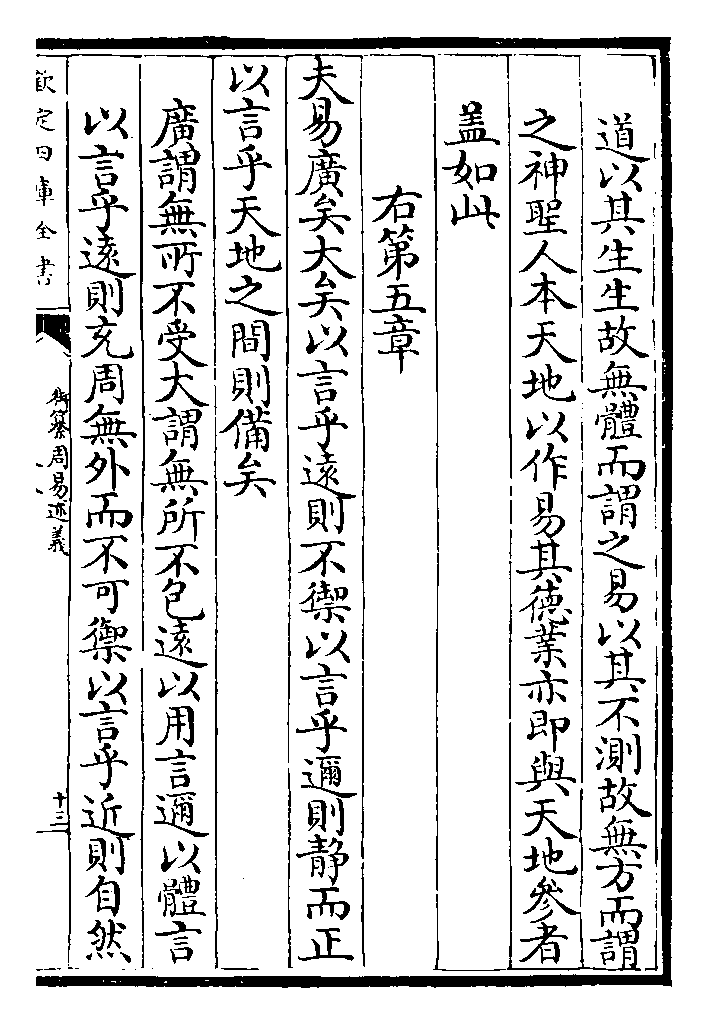 道以其生生故無體而謂之易以其不測故無方而謂
之神聖人本天地以作易其徳業亦即與天地參者
盖如此
右第五章
夫易廣矣大矣以言乎遠則不禦以言乎邇則静而正
以言乎天地之間則備矣
廣謂無所不受大謂無所不包遠以用言邇以體言
以言乎遠則充周無外而不可禦以言乎近則自然
欽定四庫全書
御纂周易述義
十三